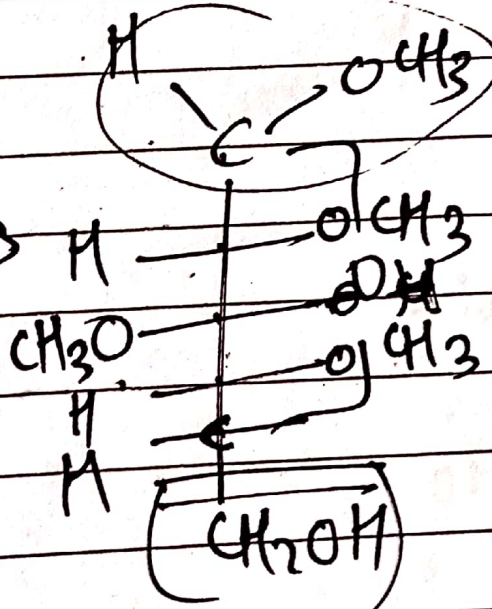 H OCH3
C
H OCH3
CH3O OH
H OCH3
H C
CH2OH